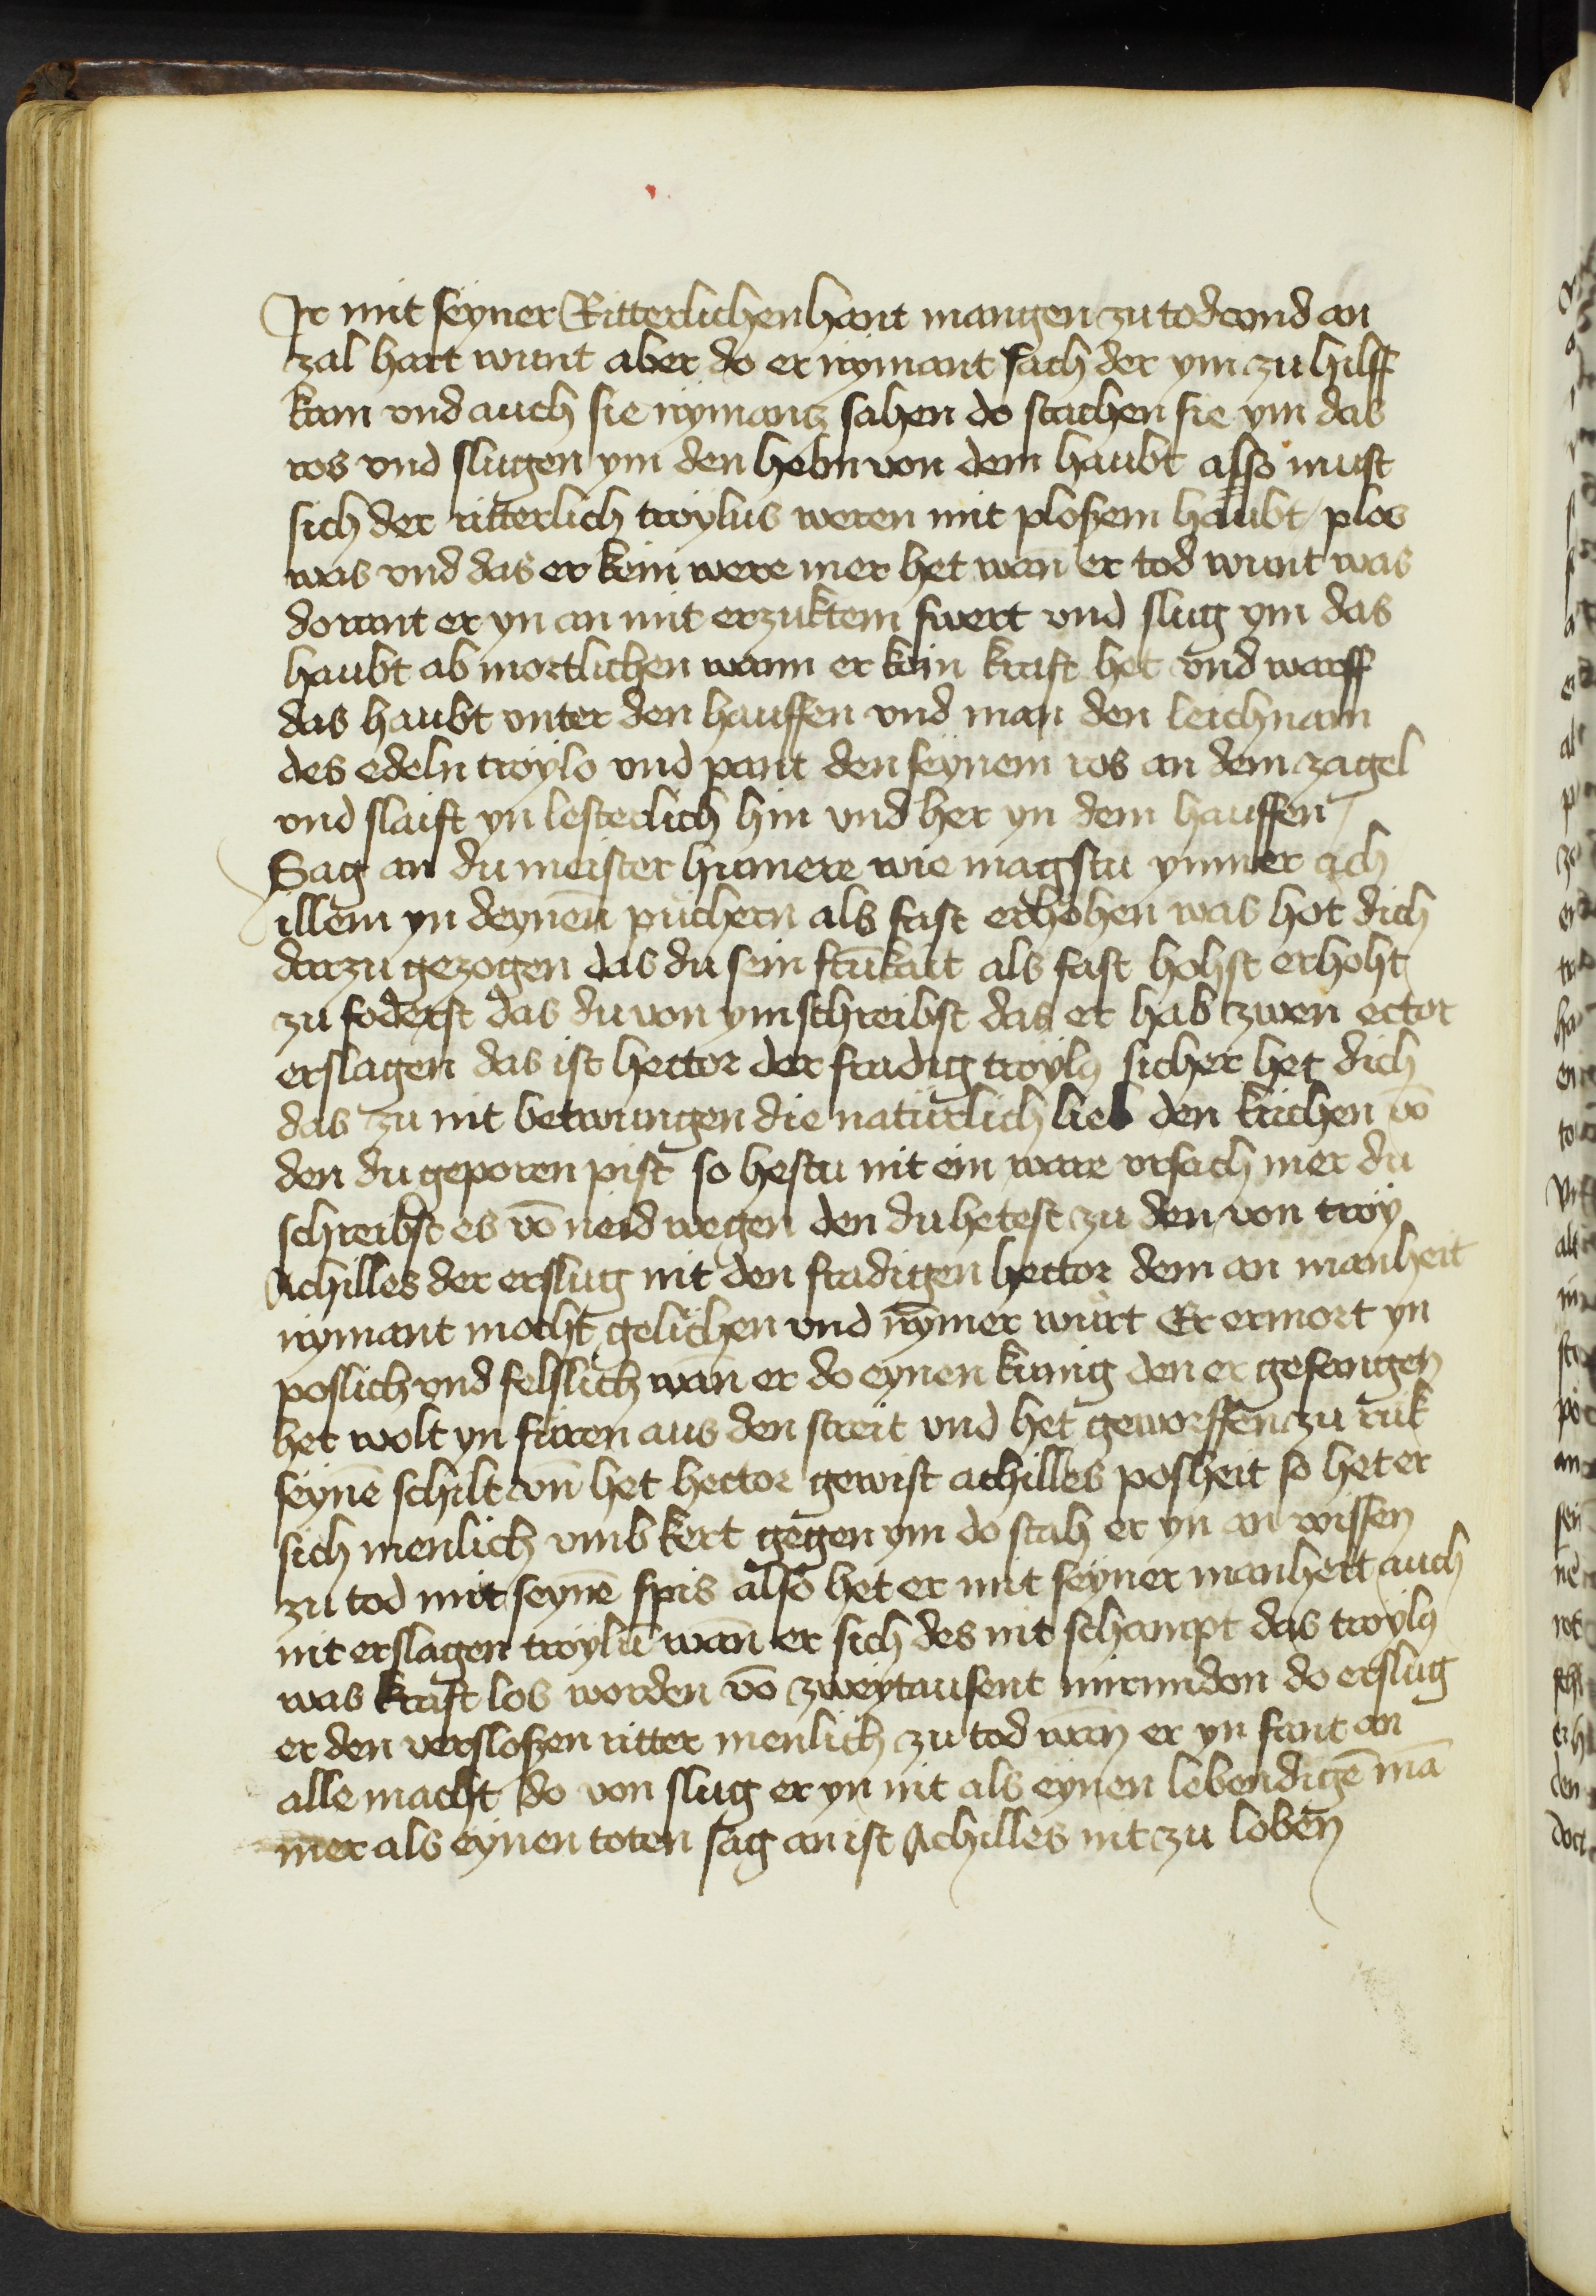 Ir mit seyner Ritterlichen hant mangen zu tod vnd an
zal hart wunt aber do er nymant sach der ym zu hilff
kam vnd auch sie nymantz sahen do stachen sie ym das
ros vnd slugen ym den helm von dem haubt also must
sich der ritterlich troylus weren mit ploßem haubt / plos
was vnd das er kein were mer het wan̄ er tod wunt was
do rant er yn an mit erzuktem swert vnd slug ym das
haubt ab mortlichen wann er kein kraft het vnd warff
das haubt vnter den hauffen vnd man den leichnam
des edeln troylo vnd pant den seynem ros an dem zagel
vnd slaift yn lesterlich hin vnd her yn dem hauffen /
Sag an du meister humere wie magstu ymmer ach
illem yn deynen puchern als fast erhohen was hot dich
darzu gezogen das du sein als fast hohst erhoht
zu foderst das du von ym schreibst das er hab zwen ector
erslagen das ist hector der fradig troylꝰ sicher het dich
das zu nit betwungen die naturlich lieb den krichen vō
den du geporen pist so hestu nit ein ware vrsach mer du
schreibst es vō neid wegen den du hetest zu den von troy
Achilles der erslug nit den fradigen hector dem an manheit
nymant mocht gelichen vnd nȳmer wurt Er ermort yn
poslich vnd felslich wan̄ er do eynen kunig den er gefangen
het wolt yn furen aus den streit vnd het geworffen zu ruk
seynē schilt vn̄ het hector gewist achilles posheit so het er
sich menlich vmb kert gegen ym do stah er yn an wissen
zu tod mit seynē spis also het er mit seyner manheit auch
nit erslagen troylū wan̄ er sich des nit schampt das troylꝰ
was kraft los worden vō zweytausent mirmidon do erslug
er den versloßen ritter menlich zu tod wan̄ er yn fant an
alle macht do von slug er yn nit als eynen lebendigē mā
mer als eynen toten sag an ist Achilles nit zu loben